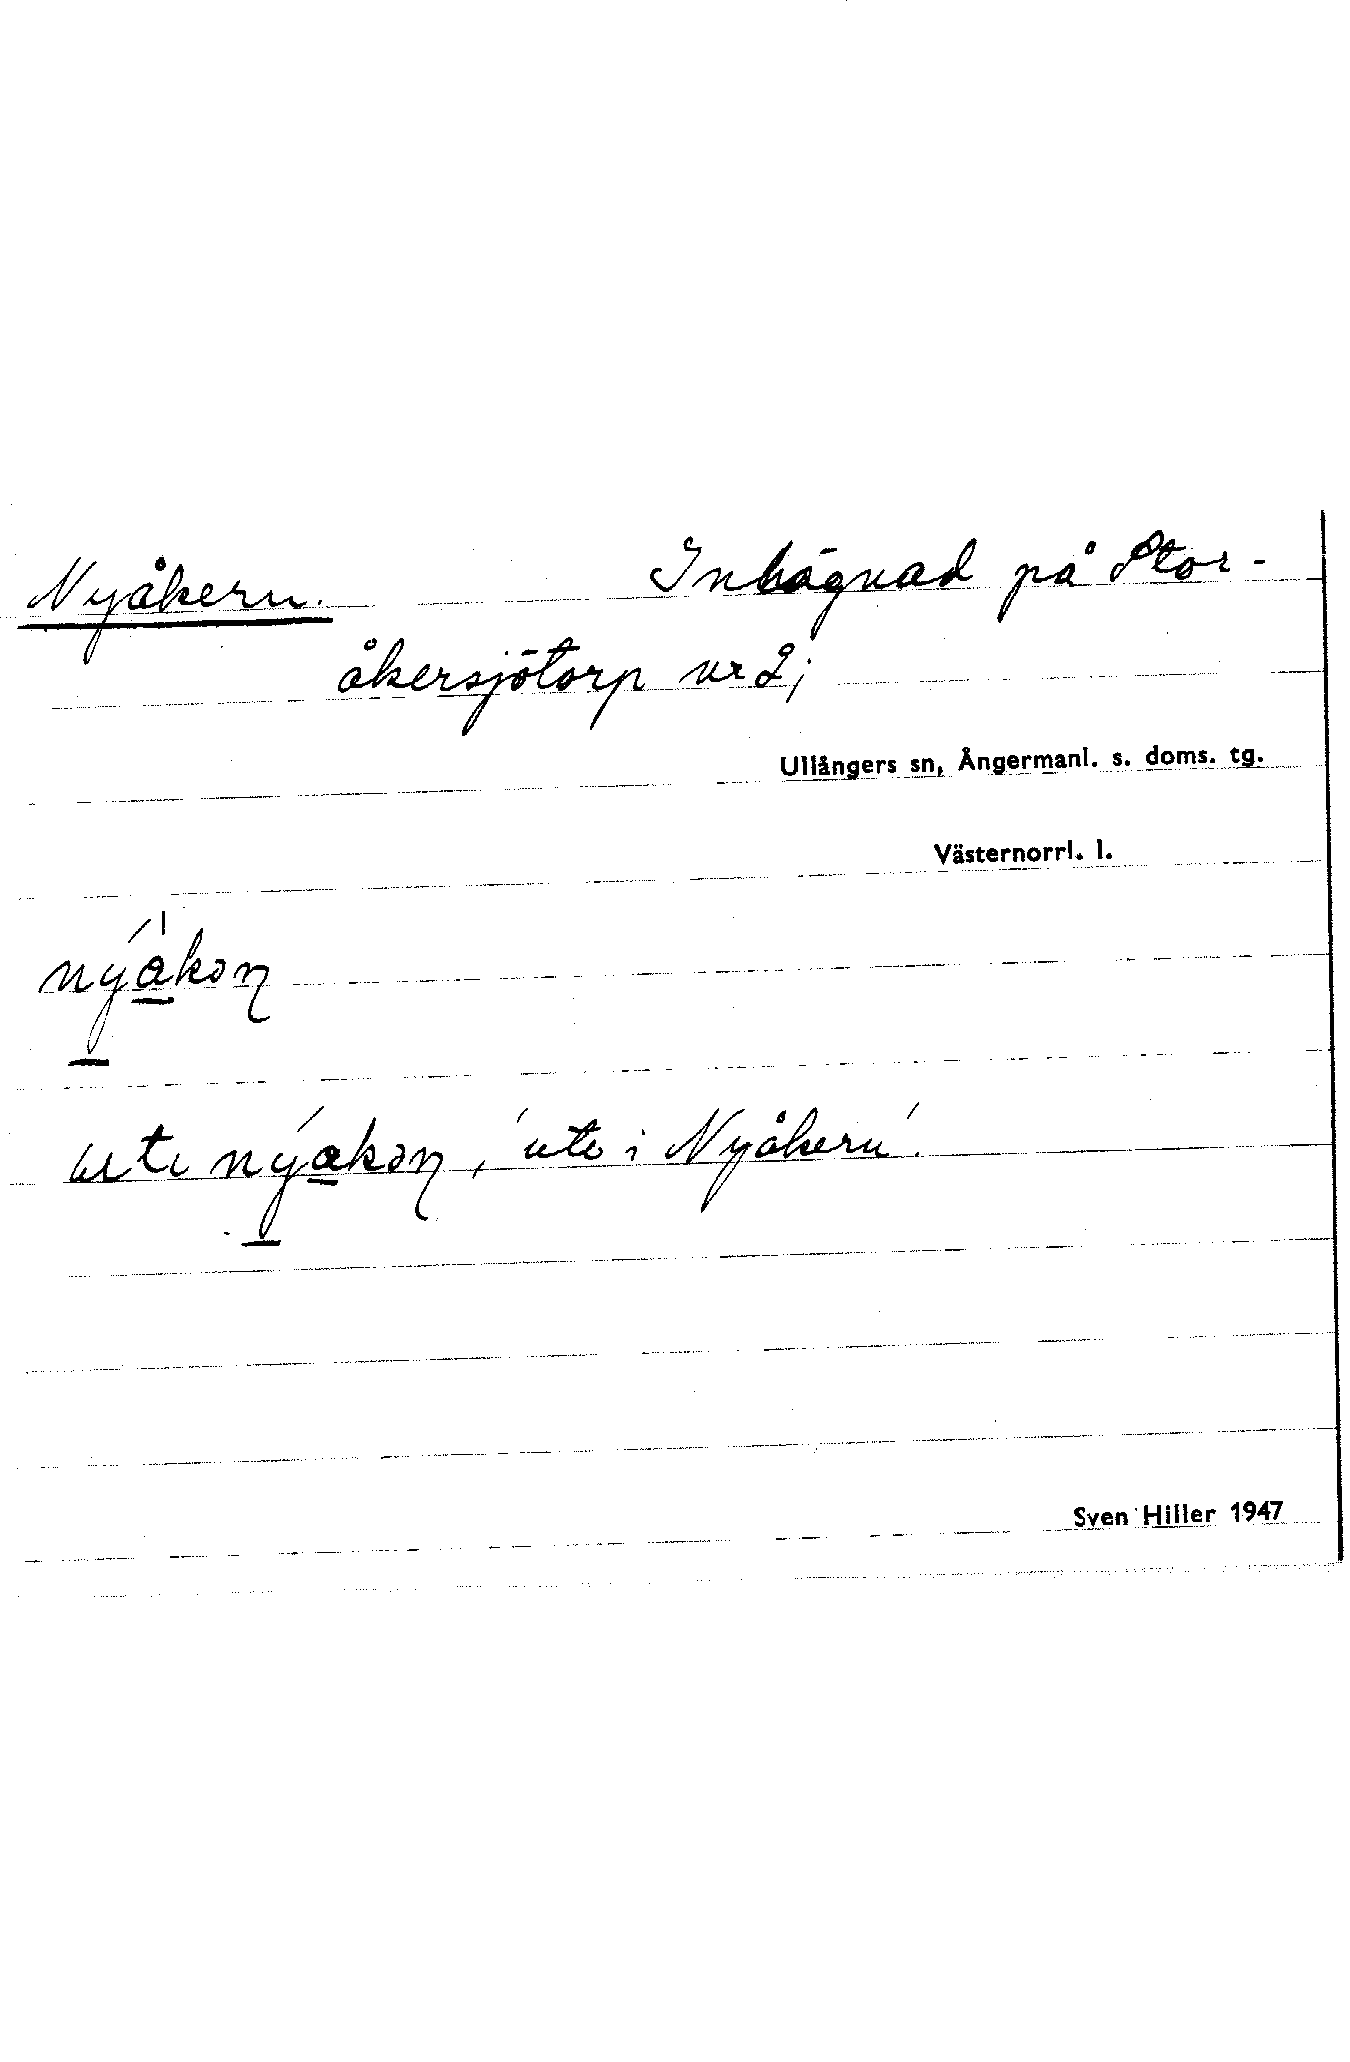 Nyåkern. Inhägnad på Stor-
åkersjötorp nr 2;
Ullångers sn, Ångermanl. s. doms. tg.
Västernorrl. l.
nýa̲kəɳ
uti nýa̲kəɳ, 'ute i Nyåkern'.
Sven Hiller 1947